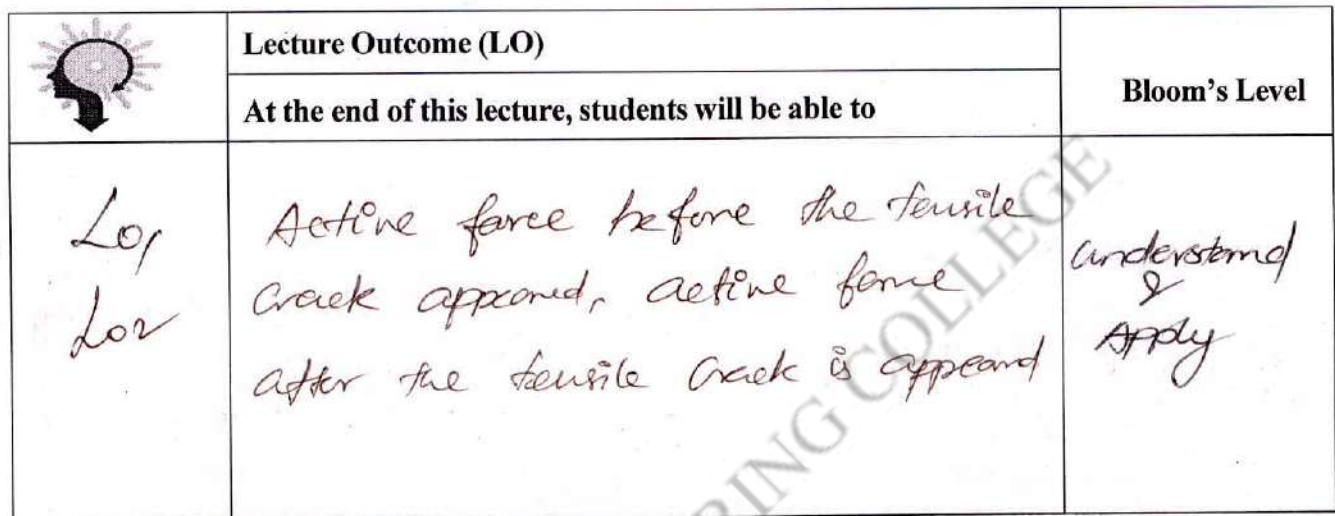 Lecture Outcome (LO)
At the end of this lecture, students will be able to
Bloom's Level
LO1
LO2
Active force before the tensile
crack appeared, active force
after the tensile crack is appeard
understand
&
Apply
RING COLLEGE